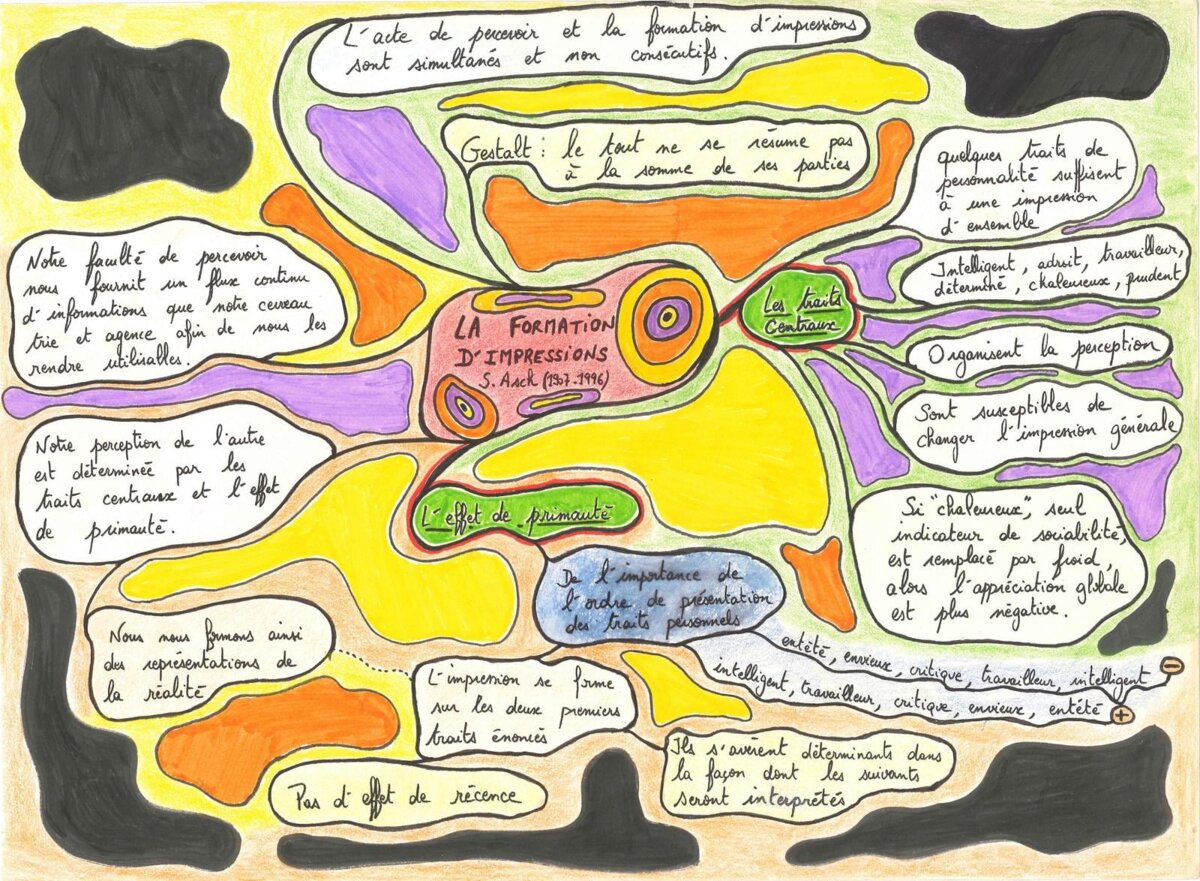 L'acte de percevoir et la formation d'impressions
sont simultanés et non consécutifs.
Gestalt : le tout ne se résume pas
à la somme de ses parties
quelques traits de
personnalité suffisent
à une impression
d'ensemble
Notre faculté de percevoir
nous fournit un flux continu
d'informations que notre cerveau
trie et agence afin de nous les
rendre utilisables.
Intelligent, adroit, travailleur,
déterminé, chaleureux, prudent
Les traits
centraux
LA FORMATION
D'IMPRESSIONS
S. Asch (1907-1996)
Organisent la perception
Sont susceptibles de
changer l'impression générale
Notre perception de l'autre
est déterminée par les
traits centraux et l'effet
de primauté.
L'effet de primauté
Si "chaleureux", seul
indicateur de sociabilité,
est remplacé par froid,
alors l'appréciation globale
est plus négative.
De l'importance de
l'ordre de présentation
des traits personnels
entêté, envieux, critique, travailleur, intelligent -
intelligent, travailleur, critique, envieux, entêté +
Nous nous formons ainsi
des représentations de
la réalité
L'impression se forme
sur les deux premiers
traits énoncés
Ils s'avèrent déterminants dans
la façon dont les suivants
seront interprétés
Pas d'effet de récence